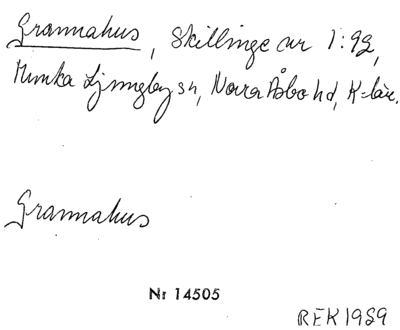 Grannahus, Skillinge ur 1:92,
Munka Ljungby sn, Norra Åsbo hd, K-län.
Grannahus
Nr 14505
REK 1989